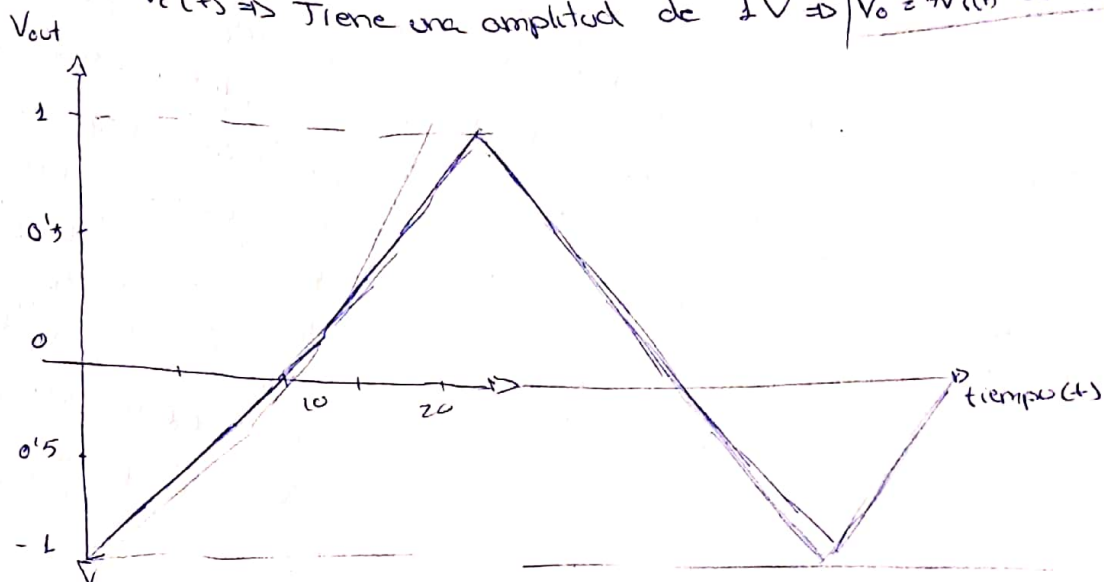 Tiene una amplitud de 1V ⇒
Vout
1
0'5
0
10
20
tiempo (t)
0'5
- 1